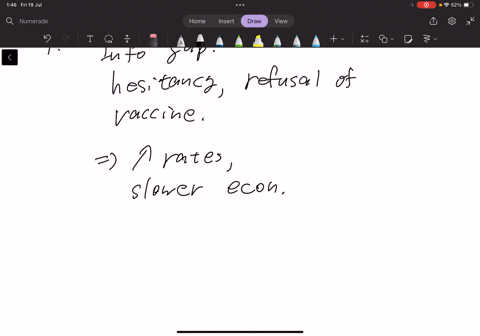 1:46 Fri 19 Jul
52%
Numerade
Home Insert Draw View
Info gap.
hesitancy, refusal of
vaccine.
=> ↑ rates,
slower econ.